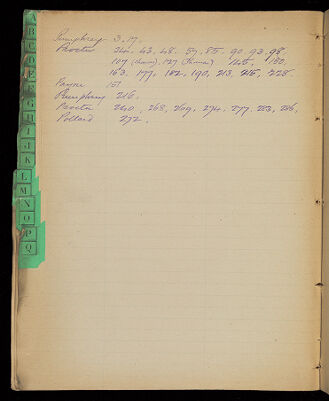 A
B
C
D
E
F
G
H
I
J
K
L
M
N
O
P
Q
Pumphrey 3. 17.
Procter 24. 43. 48. 57. 85. 90. 93. 98.
107 127 145, 150.
163. 177. 182. 190, 213. 215, 228.
Payne 151
Pumphrey 216.
Procter 240, 268, 269, 274. 277. 283, 286,
Pollard 272.